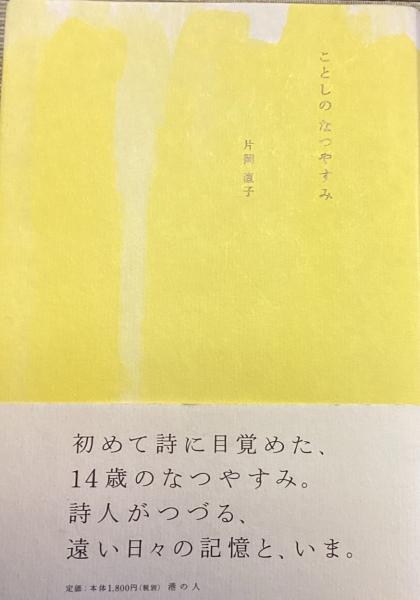 ことしの なつやすみ
片岡 直子
初めて詩に目覚めた、
14歳のなつやすみ。
詩人がつづる、
遠い日々の記憶と、いま。
定価:本体1,800円(税別) 港の人